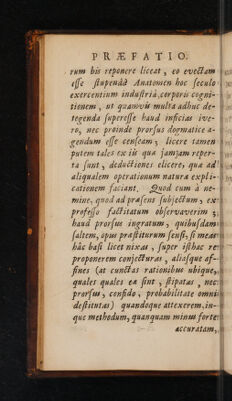 PRÆFATIO.
rum bis reponere liceat, eo evectam
esse stupendâ Anatomen hoc seculo
exercentium industriâ, corporis cogni-
tionem, ut quamvis multa adhuc de-
tegenda superesse haud inficias ive-
ro, nec proinde prorsus dogmatice a-
gendum esse censeam; licere tamen
putem tales ex iis qua jamjam reper-
ta sunt, deductiones elicere, qua ad
aliqualem operationum natura expli-
cationem faciant. Quod cum à ne-
mine, quod ad præsens subjectum, ex
professo factitatum observaverim;
haud prorsus ingratum, quibusdam
saltem, opus præstiturum sensi, si mear
hâc basi licet nixas, super isthac re
proponerem conjecturas, aliasque af-
fines (at cunctas rationibus ubique,
quales quales ea sint, stipatas, nec
prorsus, confido, probabilitate omni
destitutas) quandoque attexerem, in-
que methodum, quanquam minus forte
accuratam,